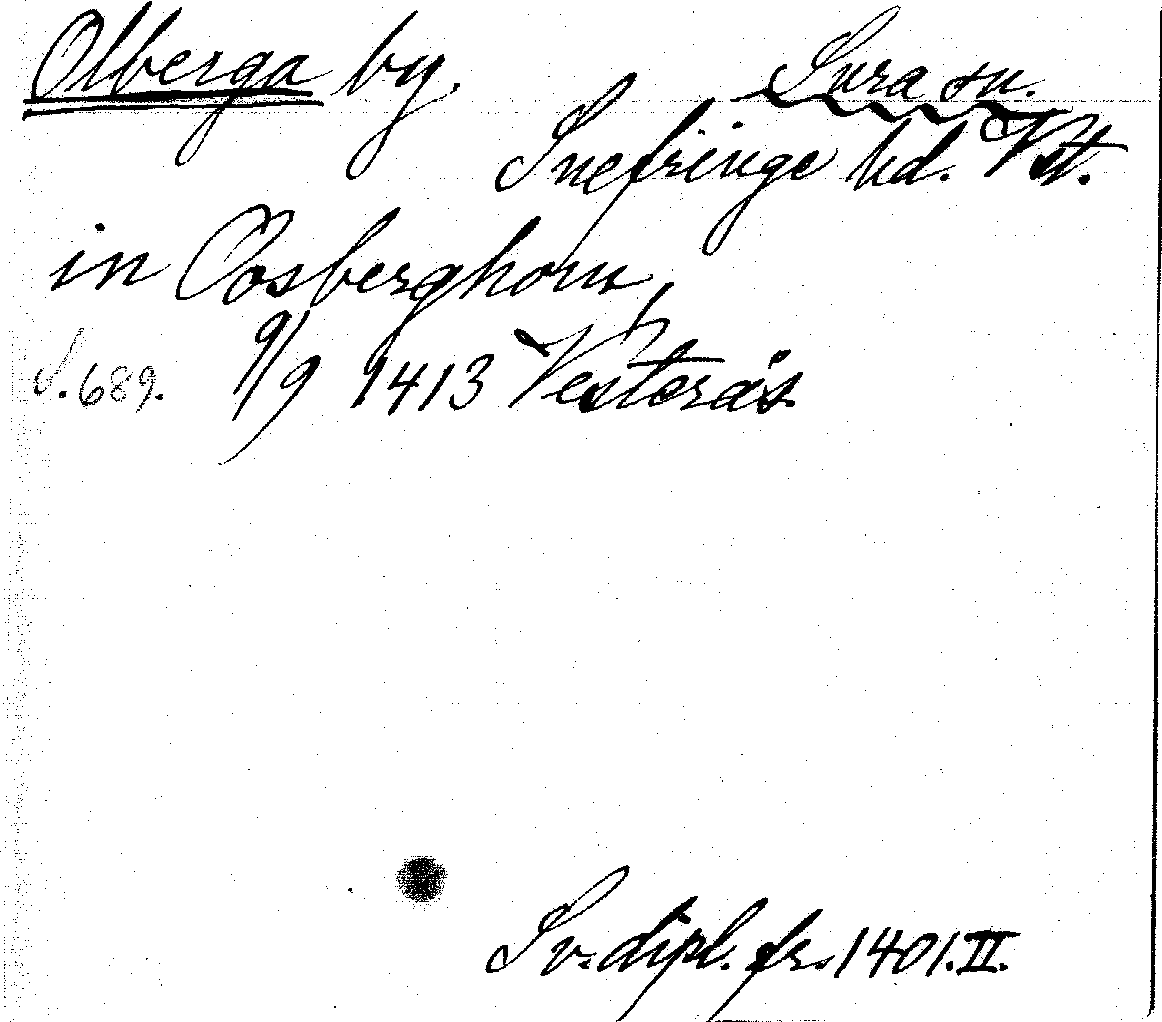 Olberga by.
Sura sn.
Snefringe hd. Vst.
in Oosberghom,
S. 689. 9/9 1413 Vesterås.
Sv. dipl. fr. 1401. II.